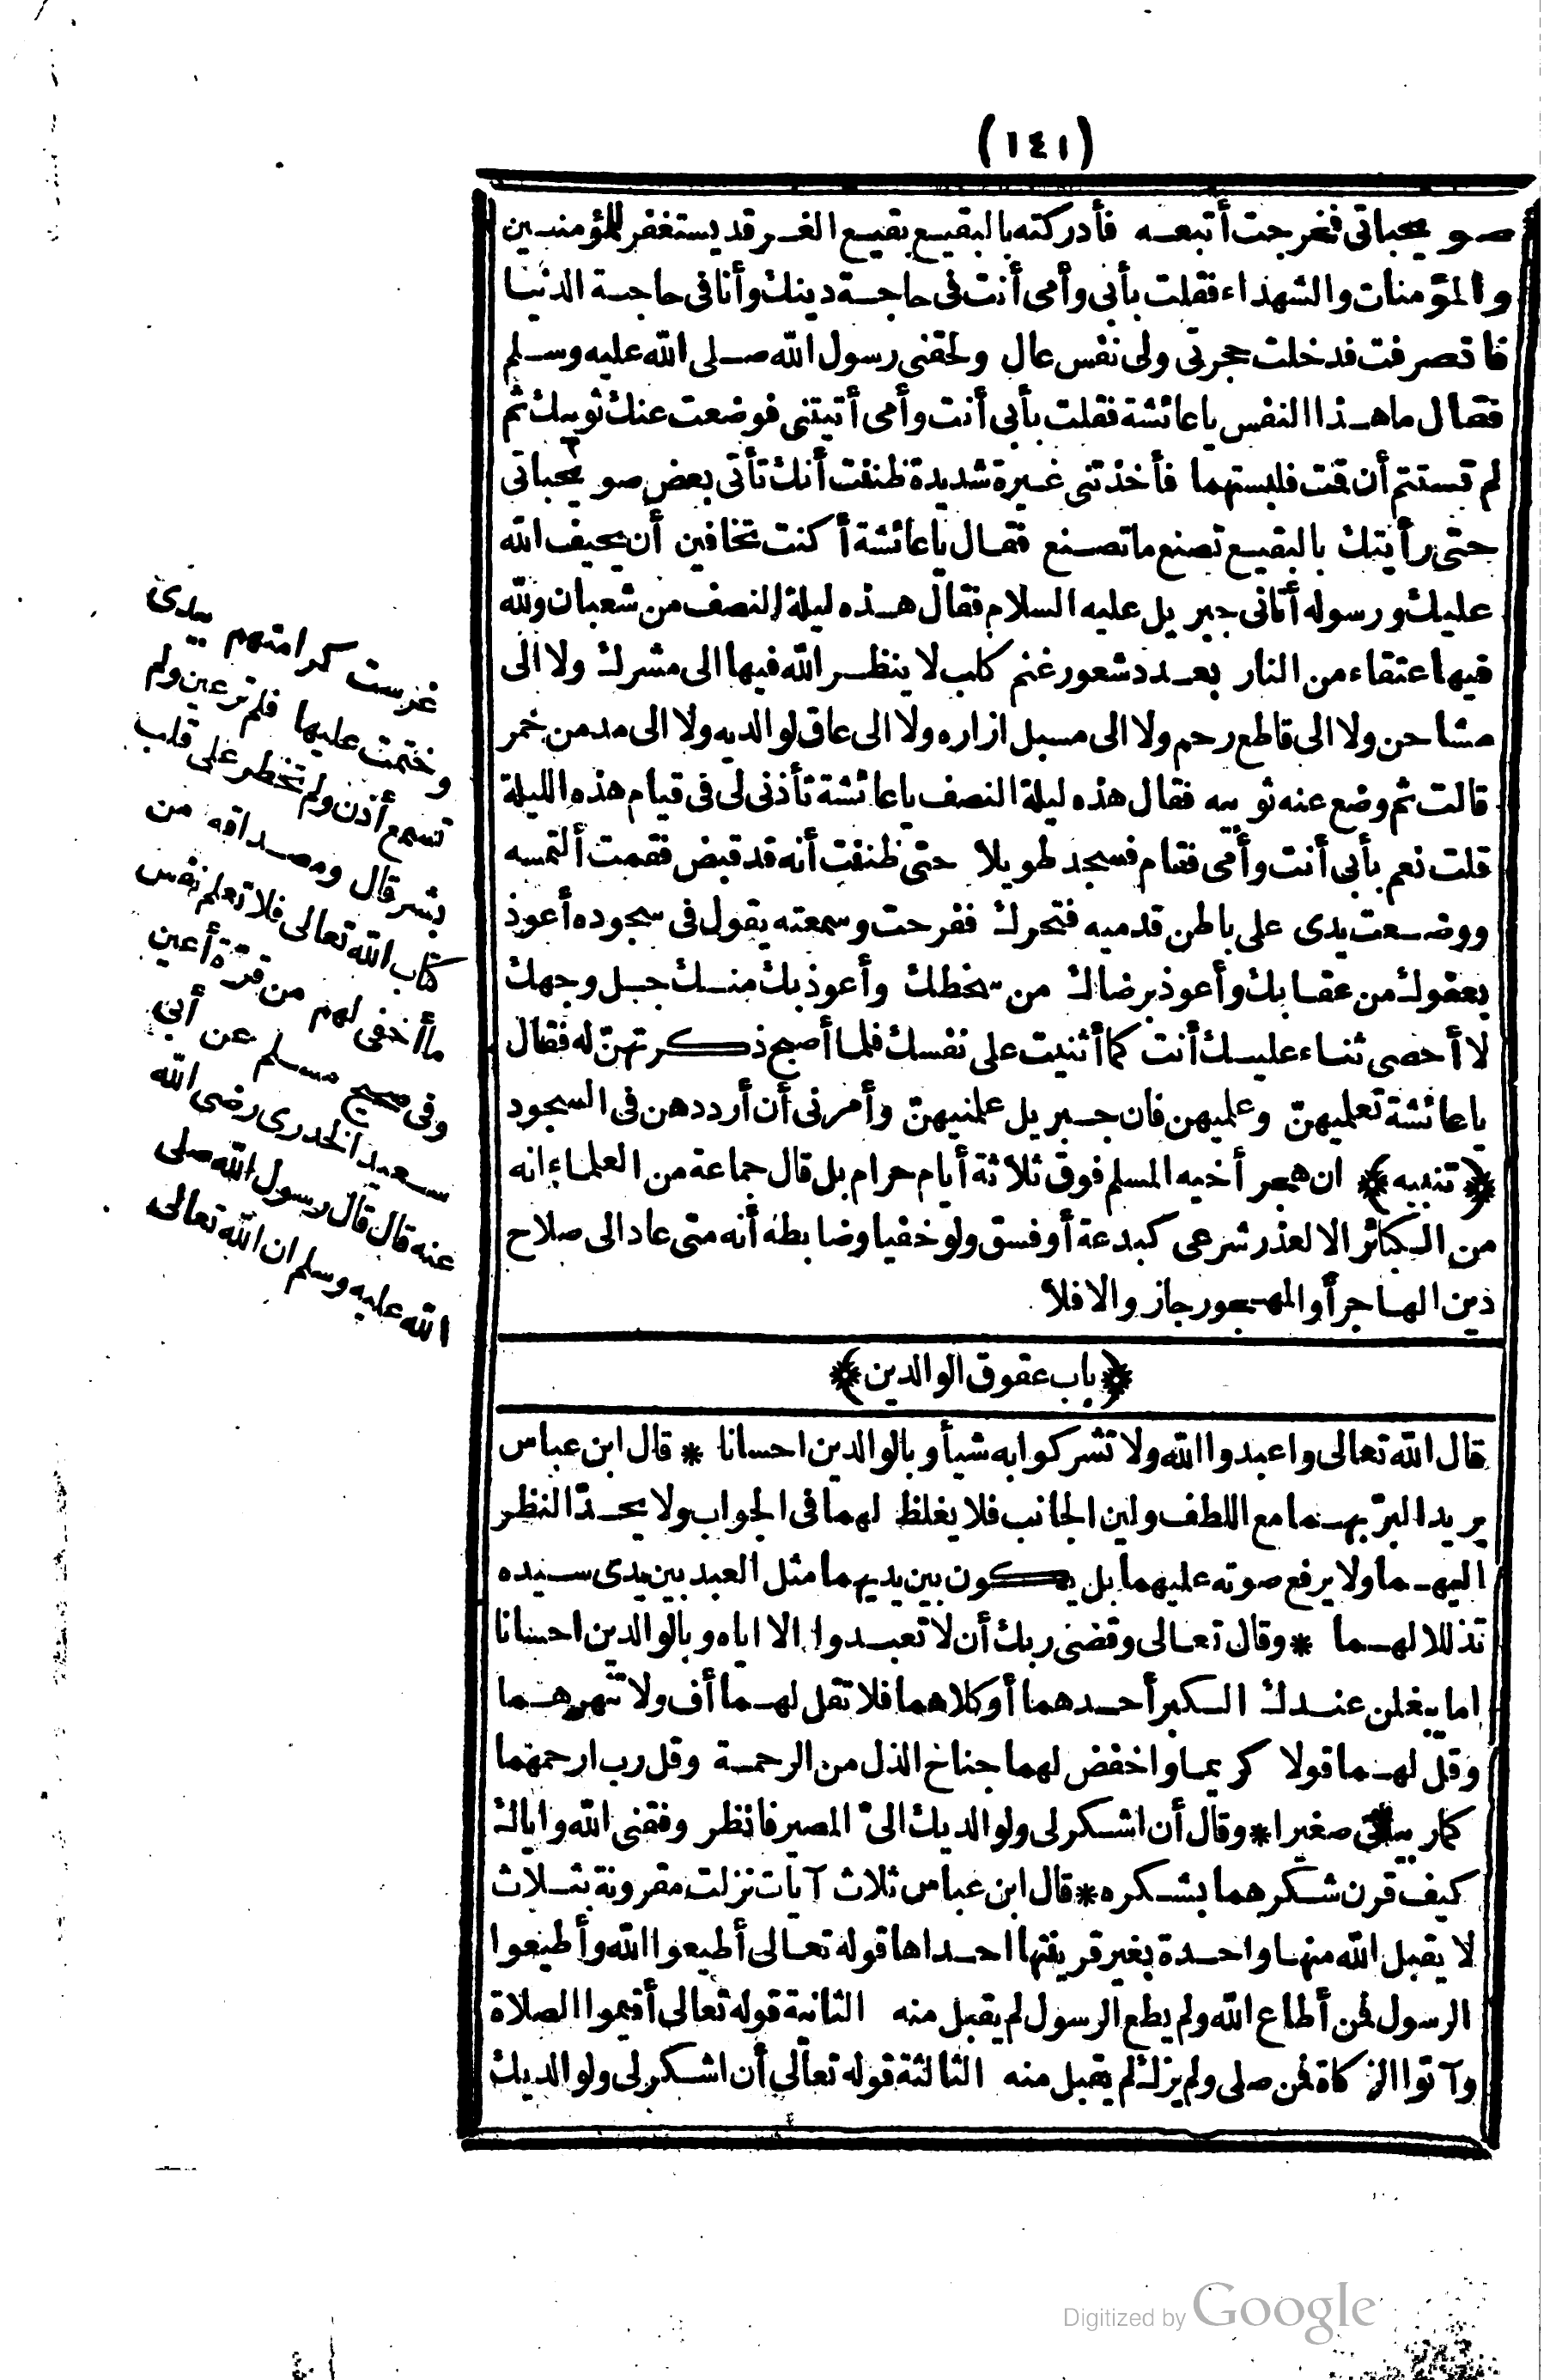 (١٤١)
صويحباتي فخرجت أتبعه فأدركته بالبقيع بقيع الغرقد يستغفر للمؤمنين
والمؤمنات والشهداء فقلت بأبي وأمي أنت في حاجة دينك وأنا في حاجة الدنيا
فانصرفت فدخلت حجرتي ولي نفس عال ولحقني رسول الله صلى الله عليه وسلم
فقال ما هذا النفس يا عائشة فقلت بأبي أنت وأمي أتيتني فوضعت عنك ثوبيك ثم
لم تستتم أن قمت فلبستهما فأخذتني غيرة شديدة ظننت أنك تأتي بعض صويحباتي
حتى رأيتك بالبقيع تصنع ما تصنع فقال يا عائشة أكنت تخافين أن يحيف الله
عليك ورسوله أتاني جبريل عليه السلام فقال هذه ليلة النصف من شعبان ولله
فيها عتقاء من النار بعدد شعور غنم كلب لا ينظر الله فيها الى مشرك ولا الى
مشاحن ولا الى قاطع رحم ولا الى مسبل ازاره ولا الى عاق لوالديه ولا الى مدمن خمر
قالت ثم وضع عنه ثوبيه فقال هذه ليلة النصف يا عائشة تأذني لي في قيام هذه الليلة
قلت نعم بأبي أنت وأمي فقام فسجد طويلا حتى ظننت أنه قد قبض فقمت ألتمسه
ووضعت يدي على باطن قدميه فتحرك ففرحت وسمعته يقول في سجوده أعوذ
بعفوك من عقابك وأعوذ برضاك من سخطك وأعوذ بك منك جل وجهك
لا أحصي ثناء عليك أنت كما أثنيت على نفسك فلما أصبح ذكرتهنّ له فقال
يا عائشة تعلميهنّ وعلميهن فان جبريل علمنيهنّ وأمرني أن أرددهن في السجود
﴿تنبيه﴾ ان هجر أخيه المسلم فوق ثلاثة أيام حرام بل قال جماعة من العلماء انه
من الكبائر الا لعذر شرعي كبدعة أو فسق ولو خفيا وضابطه أنه متى عاد الى صلاح
دين الهاجر أو المهجور جاز والا فلا
﴿باب عقوق الوالدين﴾
قال الله تعالى واعبدوا الله ولا تشركوا به شيأ وبالوالدين احسانا * قال ابن عباس
يريد البرّ بهما مع اللطف ولين الجانب فلا يغلظ لهما في الجواب ولا يحدّ النظر
اليهما ولا يرفع صوته عليهما بل يكون بين يديهما مثل العبد بين يدي سيده
تذللا لهما * وقال تعالى وقضى ربك أن لا تعبدوا الا اياه وبالوالدين احسانا
اما يبغلن عندك الكبر أحدهما أو كلاهما فلا تقل لهما أف ولا تنهرهما
وقل لهما قولا كريما واخفض لهما جناح الذل من الرحمة وقل رب ارحمهما
كما ربياني صغيرا * وقال أن اشكر لي ولوالديك اليّ المصير فانظر وفقني الله واياك
كيف قرن شكرهما بشكره * قال ابن عباس ثلاث آيات نزلت مقرونة بثلاث
لا يقبل الله منها واحدة بغير قرينتها احداها قوله تعالى أطيعوا الله وأطيعوا
الرسول فمن أطاع الله ولم يطع الرسول لم يقبل منه الثانية قوله تعالى أقيموا الصلاة
وآتوا الزكاة فمن صلى ولم يزك لم يقبل منه الثالثة قوله تعالى أن اشكر لي ولوالديك
غرست كرامتهم بيدي
وختمت عليها فلم تر عين ولم
تسمع أذن ولم تخطر على قلب
بشر قال ومصداقه من
كتاب الله تعالى فلا تعلم نفس
ما أخفي لهم من قرّة أعين
وفي صحيح مسلم عن أبي
سعيد الخدري رضي الله
عنه قال قال رسول الله صلى
الله عليه وسلم ان الله تعالى
Digitized by Google